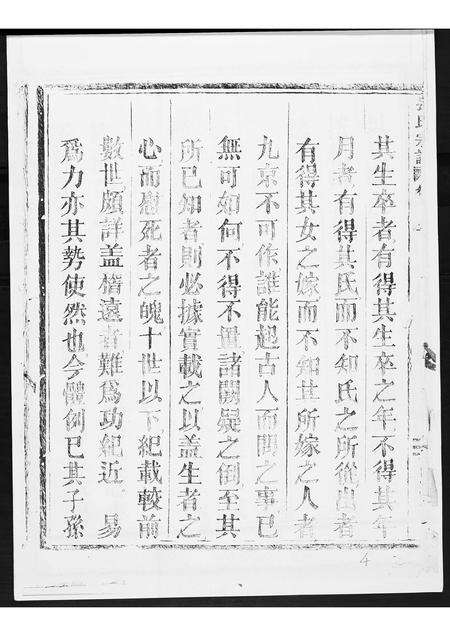 氏宗譜
其生卒者有得其生卒之年不得其年
月者有得其氏而不知氏之所從出者
有得其女之嫁而不知其所嫁之人者
九京不可作誰能起古人而問之事已
無可如何不得不置諸闕疑之例至其
所已知者則必據實載之以盖生者之
心而慰死者之魄十世以下紀載較前
數世頗詳盖稽遠者難爲功紀近 易
爲力亦其勢使然也今體例已其子孫
4